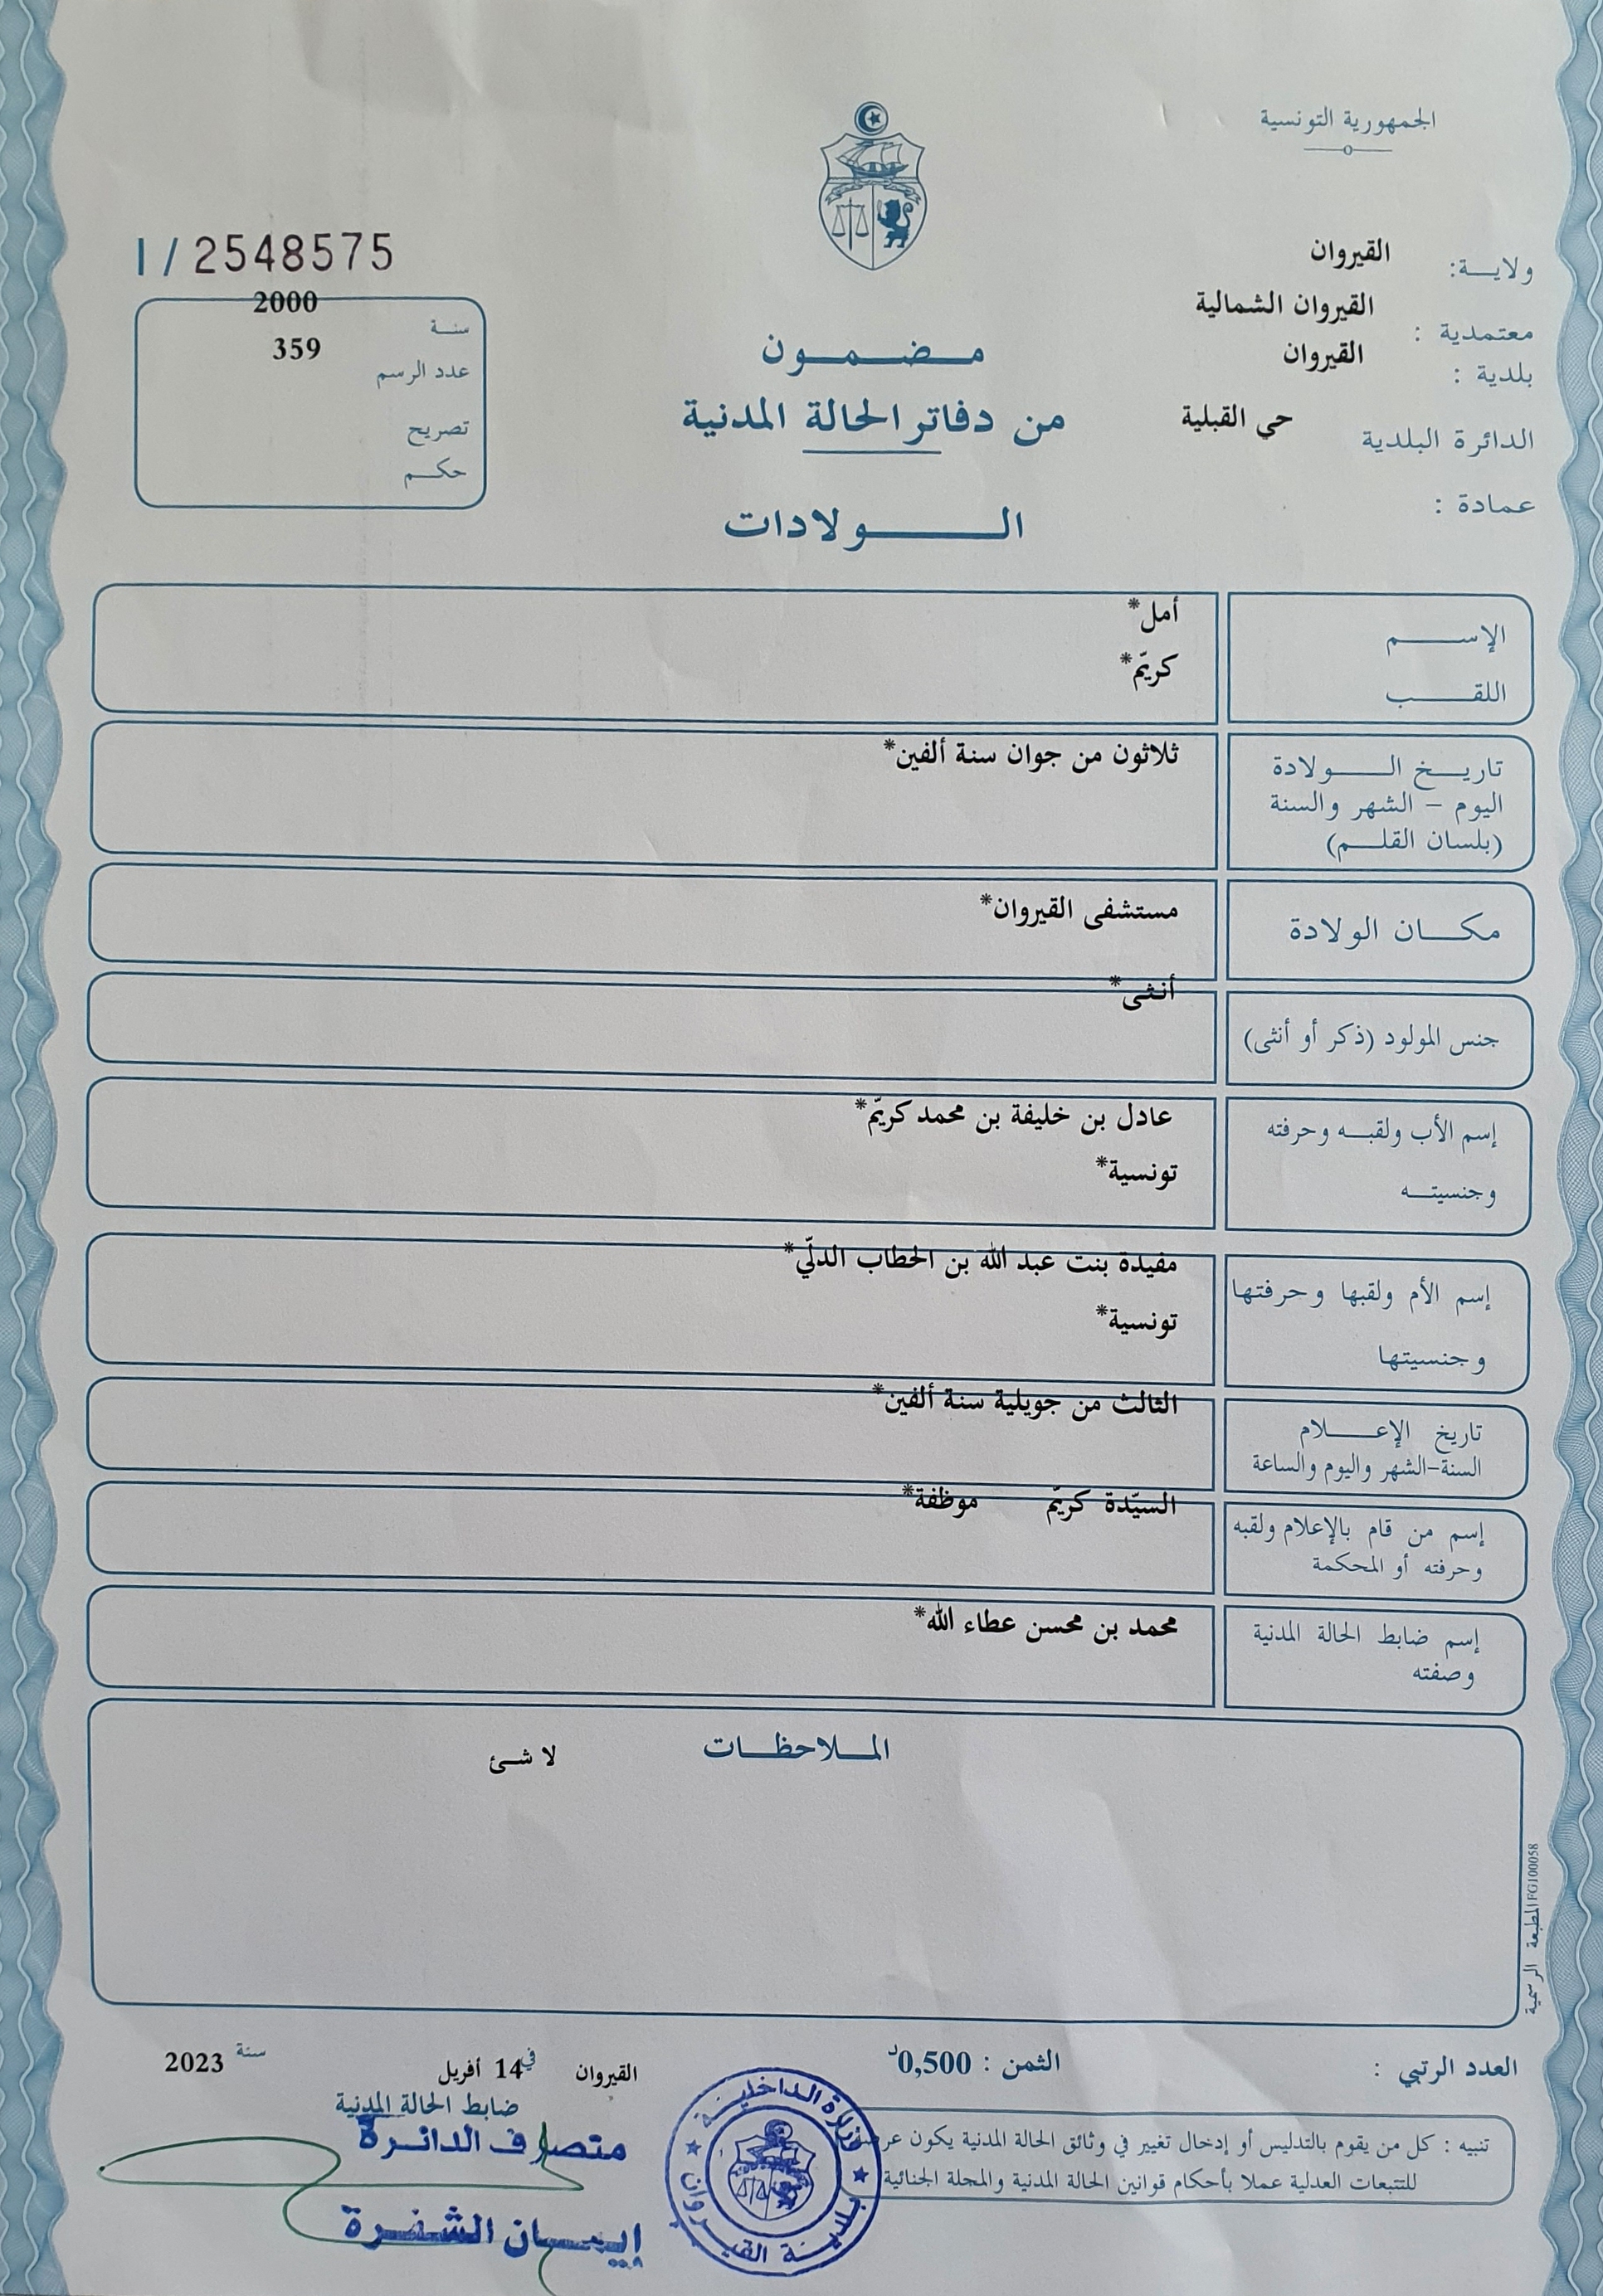 الجمهورية التونسية
ولايـــة: القيروان
معتمدية : القيروان الشمالية
بلدية : القيروان
الدائرة البلدية حي القبلية
عمادة :
I/2548575
سنة 2000
عدد الرسم 359
تصريح
حكم
مضمون
من دفاتر الحالة المدنية
الولادات
الإسم أمل*
اللقب كريّم*
تاريخ الولادة ثلاثون من جوان سنة ألفين*
اليوم – الشهر والسنة
(بلسان القلم)
مكان الولادة مستشفى القيروان*
جنس المولود (ذكر أو أنثى) أنثى*
إسم الأب ولقبه وحرفته عادل بن خليفة بن محمد كريّم*
وجنسيته تونسية*
إسم الأم ولقبها وحرفتها مفيدة بنت عبد الله بن الحطاب الدلّي*
وجنسيتها تونسية*
تاريخ الإعلام الثالث من جويلية سنة ألفين*
السنة-الشهر واليوم والساعة
إسم من قام بالإعلام ولقبه السيّدة كريّم موظفة*
وحرفته أو المحكمة
إسم ضابط الحالة المدنية محمد بن محسن عطاء الله*
وصفته
الملاحظات لا شئ
المطبعة الرسمية FG100058
العدد الرتبي :
الثمن : 0,500د
القيروان في 14 أفريل سنة 2023
ضابط الحالة المدنية
متصرف الدائرة
إيمان الشفرة
وزارة الداخلية
بلدية القيروان
تنبيه : كل من يقوم بالتدليس أو إدخال تغيير في وثائق الحالة المدنية يكون عرضة
للتتبعات العدلية عملا بأحكام قوانين الحالة المدنية والمجلة الجنائية